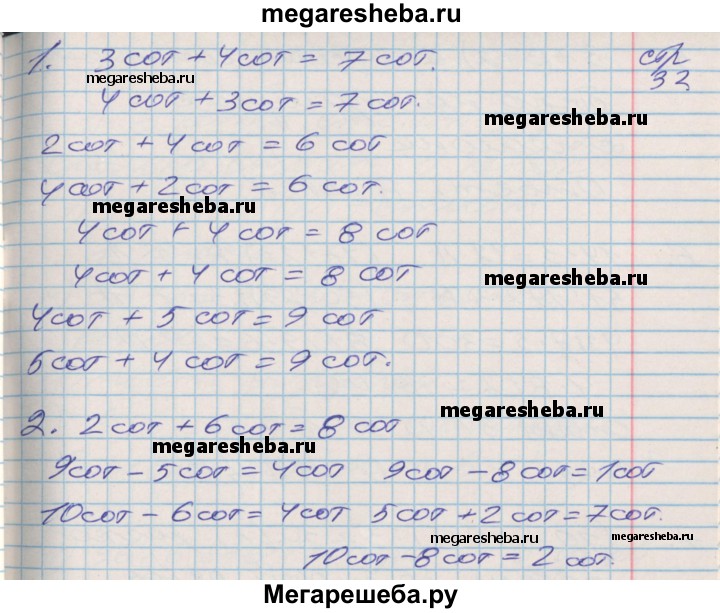 megaresheba.ru
1. 3 сот + 4 сот = 7 сот. стр 32
megaresheba.ru
4 сот + 3 сот = 7 сот.
megaresheba.ru
2 сот + 4 сот = 6 сот
4 сот + 2 сот = 6 сот.
megaresheba.ru
4 сот + 4 сот = 8 сот
4 сот + 4 сот = 8 сот
megaresheba.ru
4 сот + 5 сот = 9 сот
5 сот + 4 сот = 9 сот.
megaresheba.ru
2. 2 сот + 6 сот = 8 сот
megaresheba.ru
9 сот - 5 сот = 4 сот 9 сот - 8 сот = 1 сот
10 сот - 6 сот = 4 сот 5 сот + 2 сот = 7 сот.
megaresheba.ru megaresheba.ru
10 сот - 8 сот = 2 сот.
Мегарешеба.ру